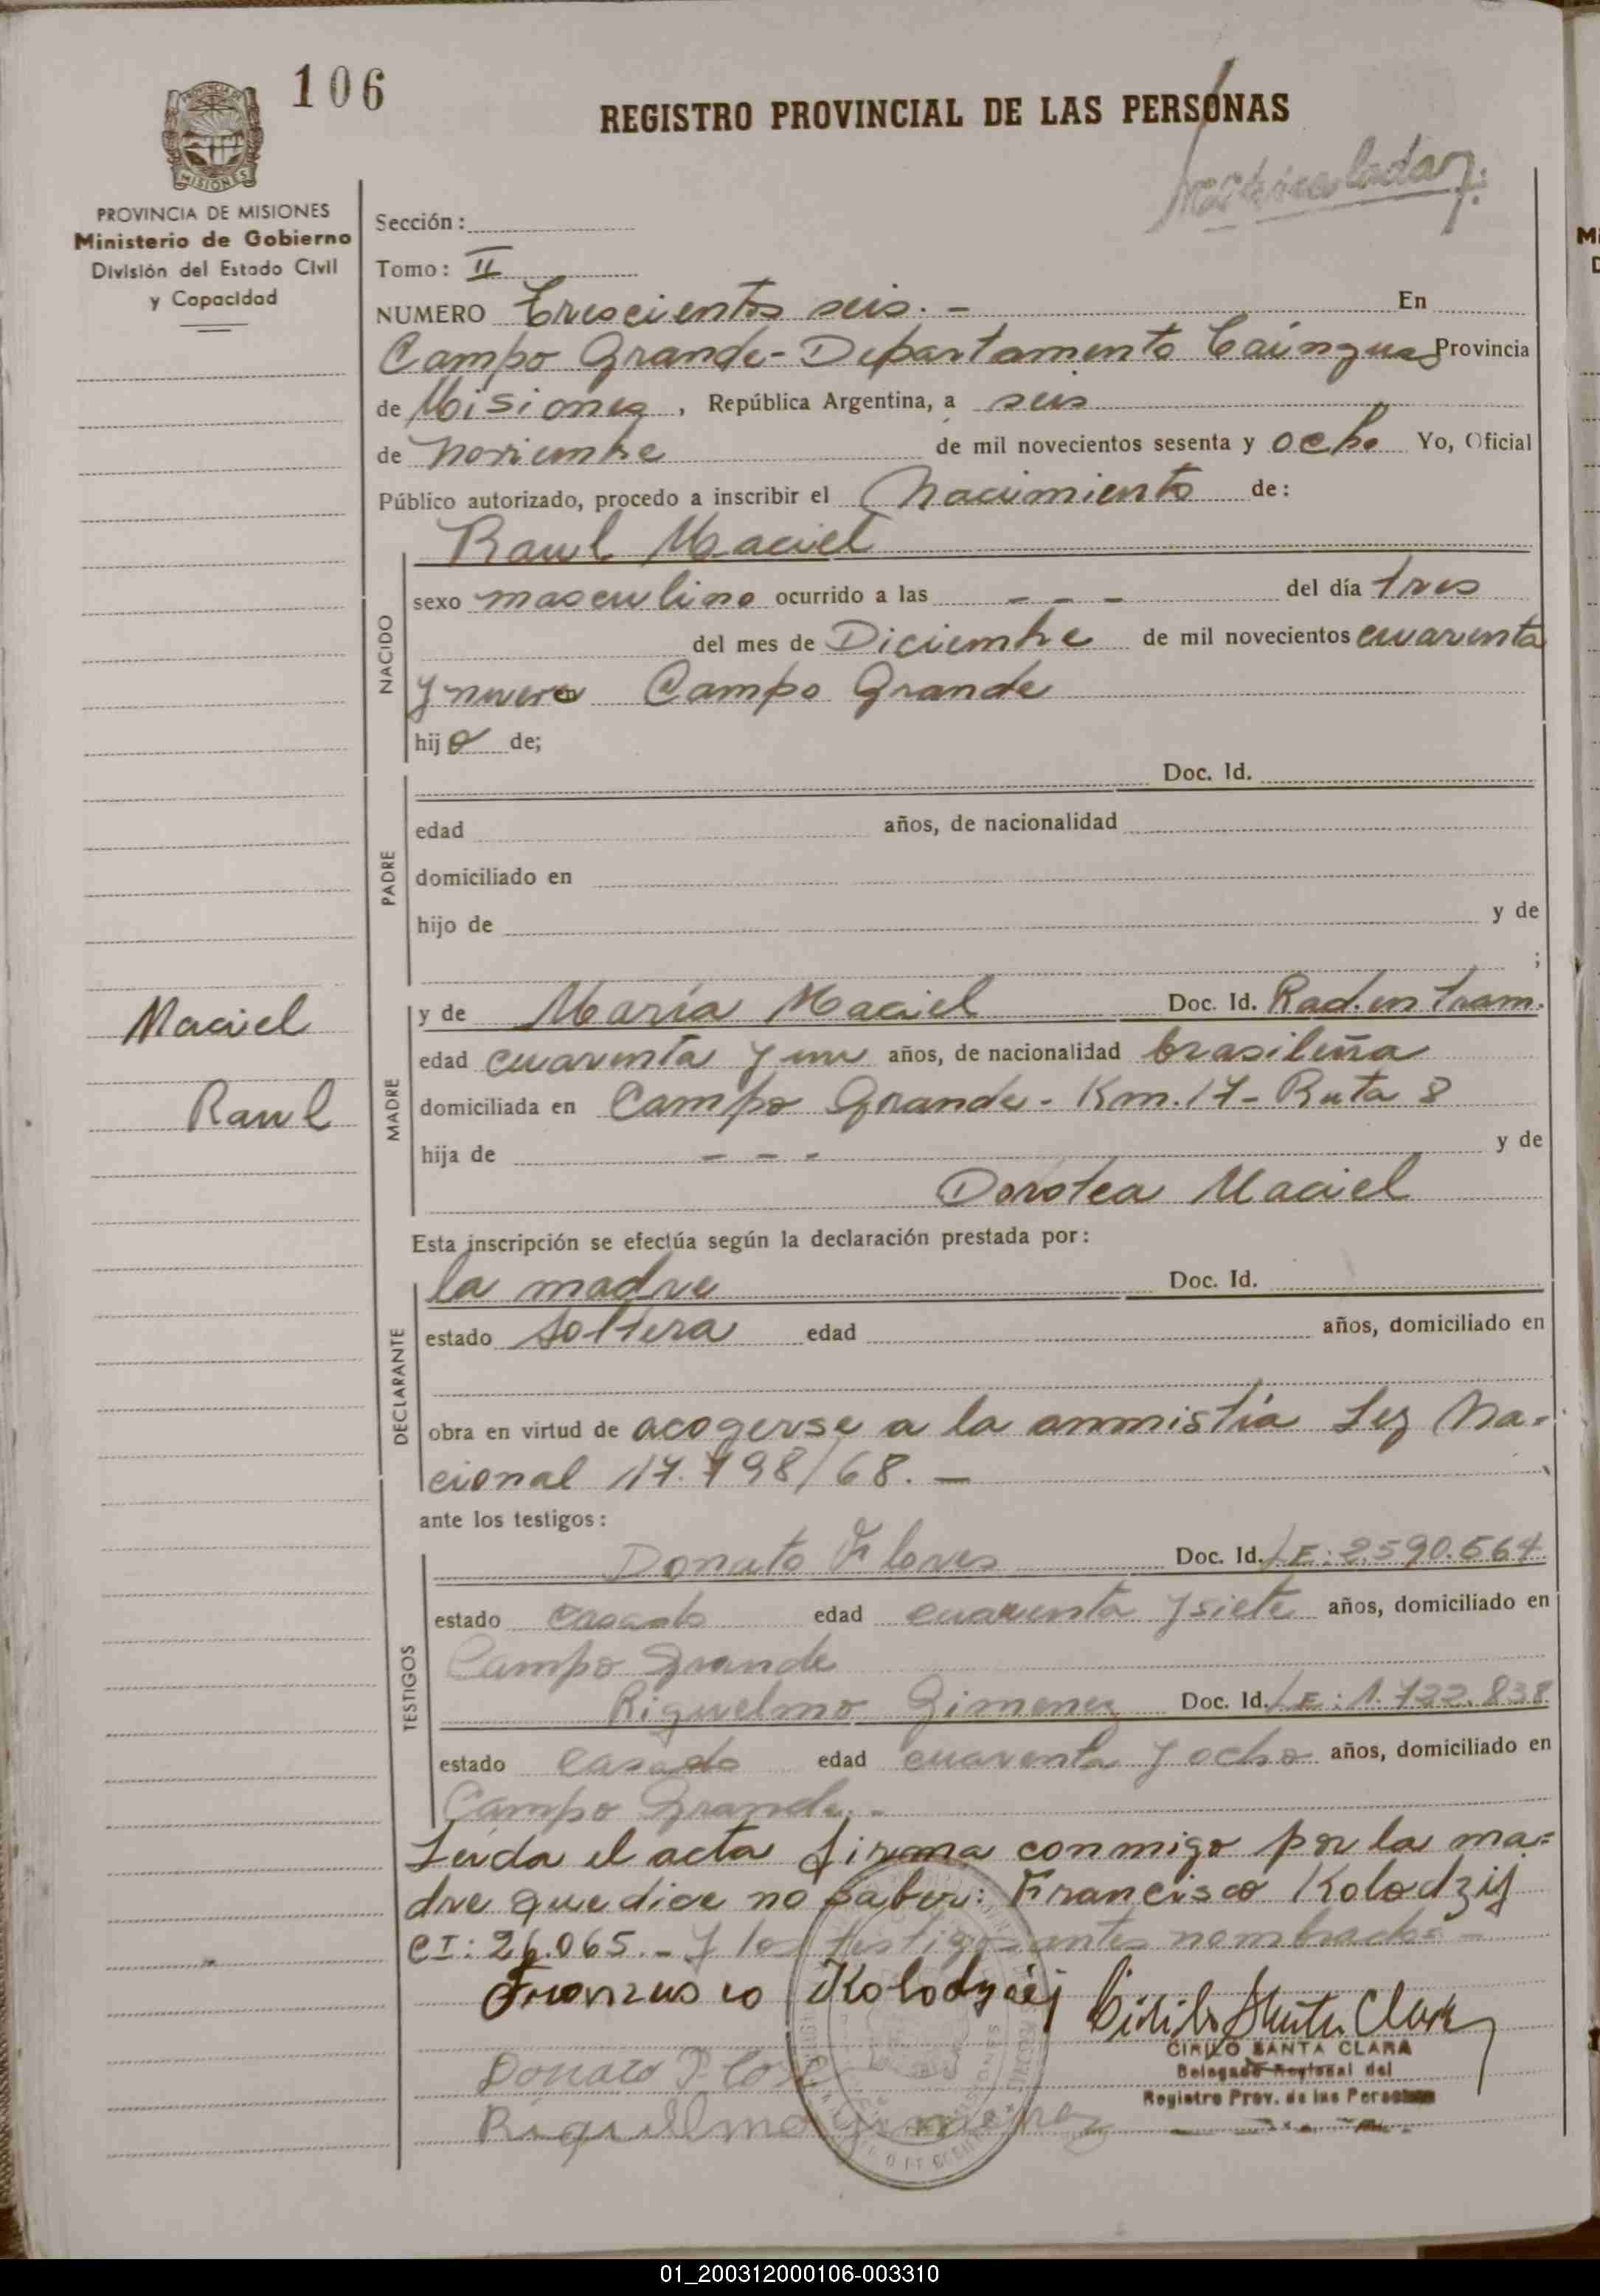 106
REGISTRO PROVINCIAL DE LAS PERSONAS
MISIONES
PROVINCIA DE MISIONES
Ministerio de Gobierno
División del Estado Civil
y Capacidad
Sección:
Tomo: II
NUMERO Trescientos seis. - En
Campo Grande - Departamento Cainguas Provincia
de Misiones, República Argentina, a seis
de noviembre de mil novecientos sesenta y ocho Yo, Oficial
Público autorizado, procedo a inscribir el Nacimiento de:
Raul Maciel
NACIDO
sexo masculino ocurrido a las - - - del día tres
del mes de Diciembre de mil novecientos cuarenta
y nueve Campo Grande
hijo de;
PADRE
Doc. Id.
edad años, de nacionalidad
domiciliado en
hijo de y de
;
Maciel
Raul
MADRE
y de María Maciel Doc. Id. Rad. en tram.
edad cuarenta y un años, de nacionalidad brasileña
domiciliada en Campo Grande - Km. 17 - Ruta 8
hija de - - - y de
Dorotea Maciel
Esta inscripción se efectúa según la declaración prestada por:
DECLARANTE
la madre Doc. Id.
estado soltera edad años, domiciliado en
obra en virtud de acogerse a la ammistía Ley Na-
cional 17.798/68. -
ante los testigos:
TESTIGOS
Donato Flores Doc. Id. LE: 2.590.564
estado casado edad cuarenta y siete años, domiciliado en
Campo Grande
Riquelmo Gimenez Doc. Id. LE: 1.722.838
estado casado edad cuarenta y ocho años, domiciliado en
Campo Grande. -
Leída el acta firma conmigo por la ma-
dre que dice no saber: Francisco Kolodzij
CI: 26.065. - y los testigos antes nombrados -
Francisco Kolodziej
Cirilo Santa Clara
CIRILO SANTA CLARA
Delegado Regional del
Registro Prov. de las Personas
Donato Flores
Riquelmo Gimenez
01_200312000106-003310